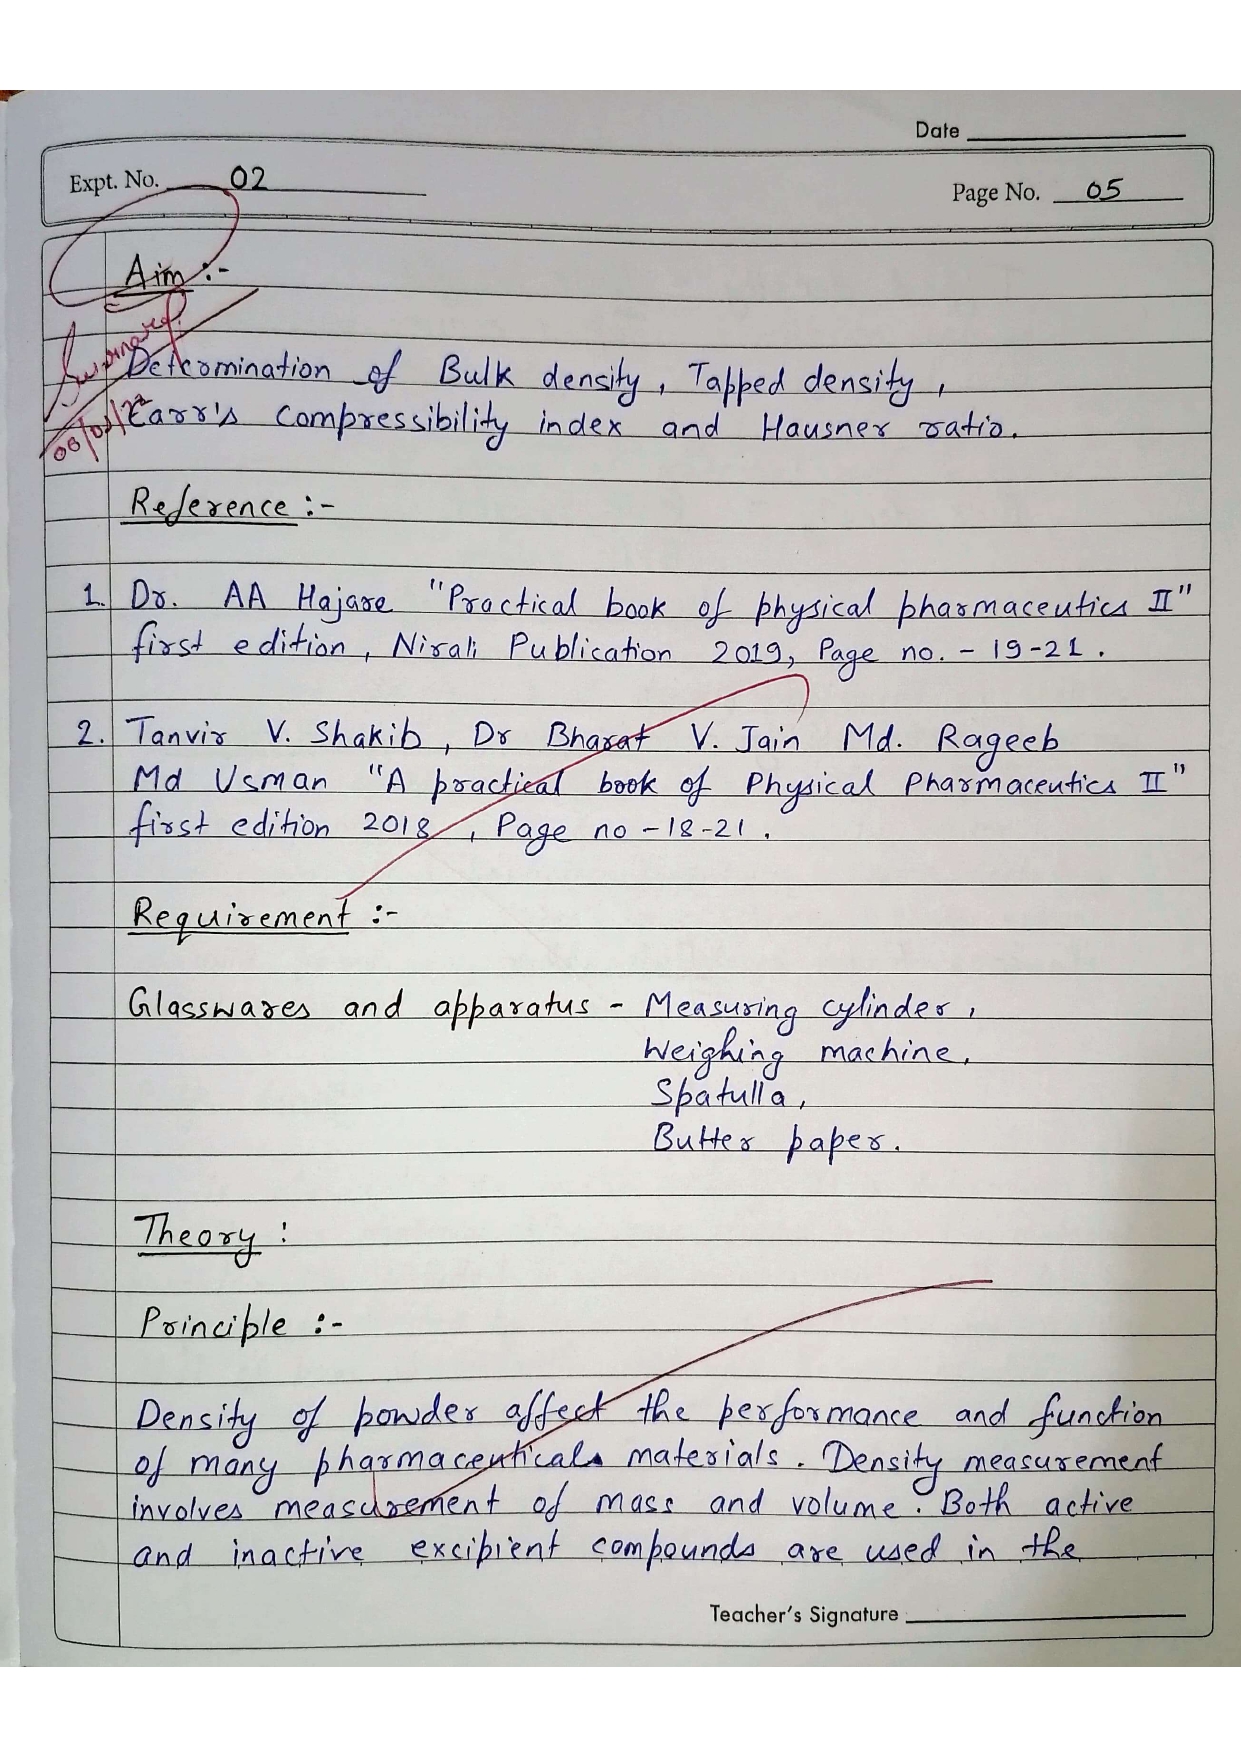 Date
Expt. No. 02
Page No. 05
Aim :-
Determination of Bulk density, Tapped density,
Carr's compressibility index and Hausner ratio.
Reference :-
1. Dr. AA Hajare "Practical book of physical pharmaceutics II"
first edition, Nirali Publication 2019, Page no. - 19-21.
2. Tanvir V. Shakib, Dr Bharat V. Jain Md. Rageeb
Md Usman "A practical book of Physical Pharmaceutics II"
first edition 2018, Page no -18-21.
Requirement :-
Glasswares and apparatus - Measuring cylinder,
Weighing machine,
Spatulla,
Butter paper.
Theory :
Principle :-
Density of powder affect the performance and function
of many pharmaceuticals materials. Density measurement
involves measurement of mass and volume. Both active
and inactive excipient compounds are used in the
Teacher's Signature